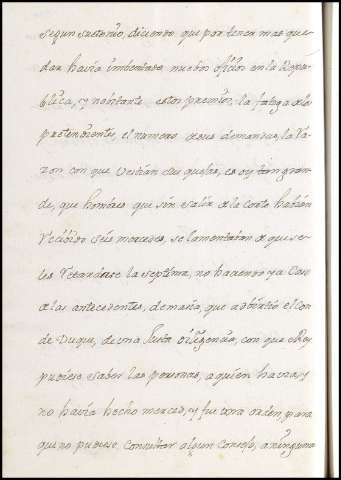 segun suetonio, diciendo que por tener mas que
dar havia imbentado nuebos oficios en la Repu-
blica, y nobstante estos premios, la fatiga de los
pretendientes, el numero de sus demandas, la Ra-
zon con que Vestian sus quejas, es oy tan gran-
de, que hombres que sin salir de la corte habian
Recibido seis mercedes, se lamentaban de que se
les Retardase la septima, no haciendo ya Caso
de las antecedentes, de maña, que adbirtio el Con
de Duque, de una Justa diligencia, con que el Rey
pudiese saber las personas, a quien hacia, y
no havia hecho merced, y fue otra orden, para
que no pudiese consultar algun Consejo, a ninguna